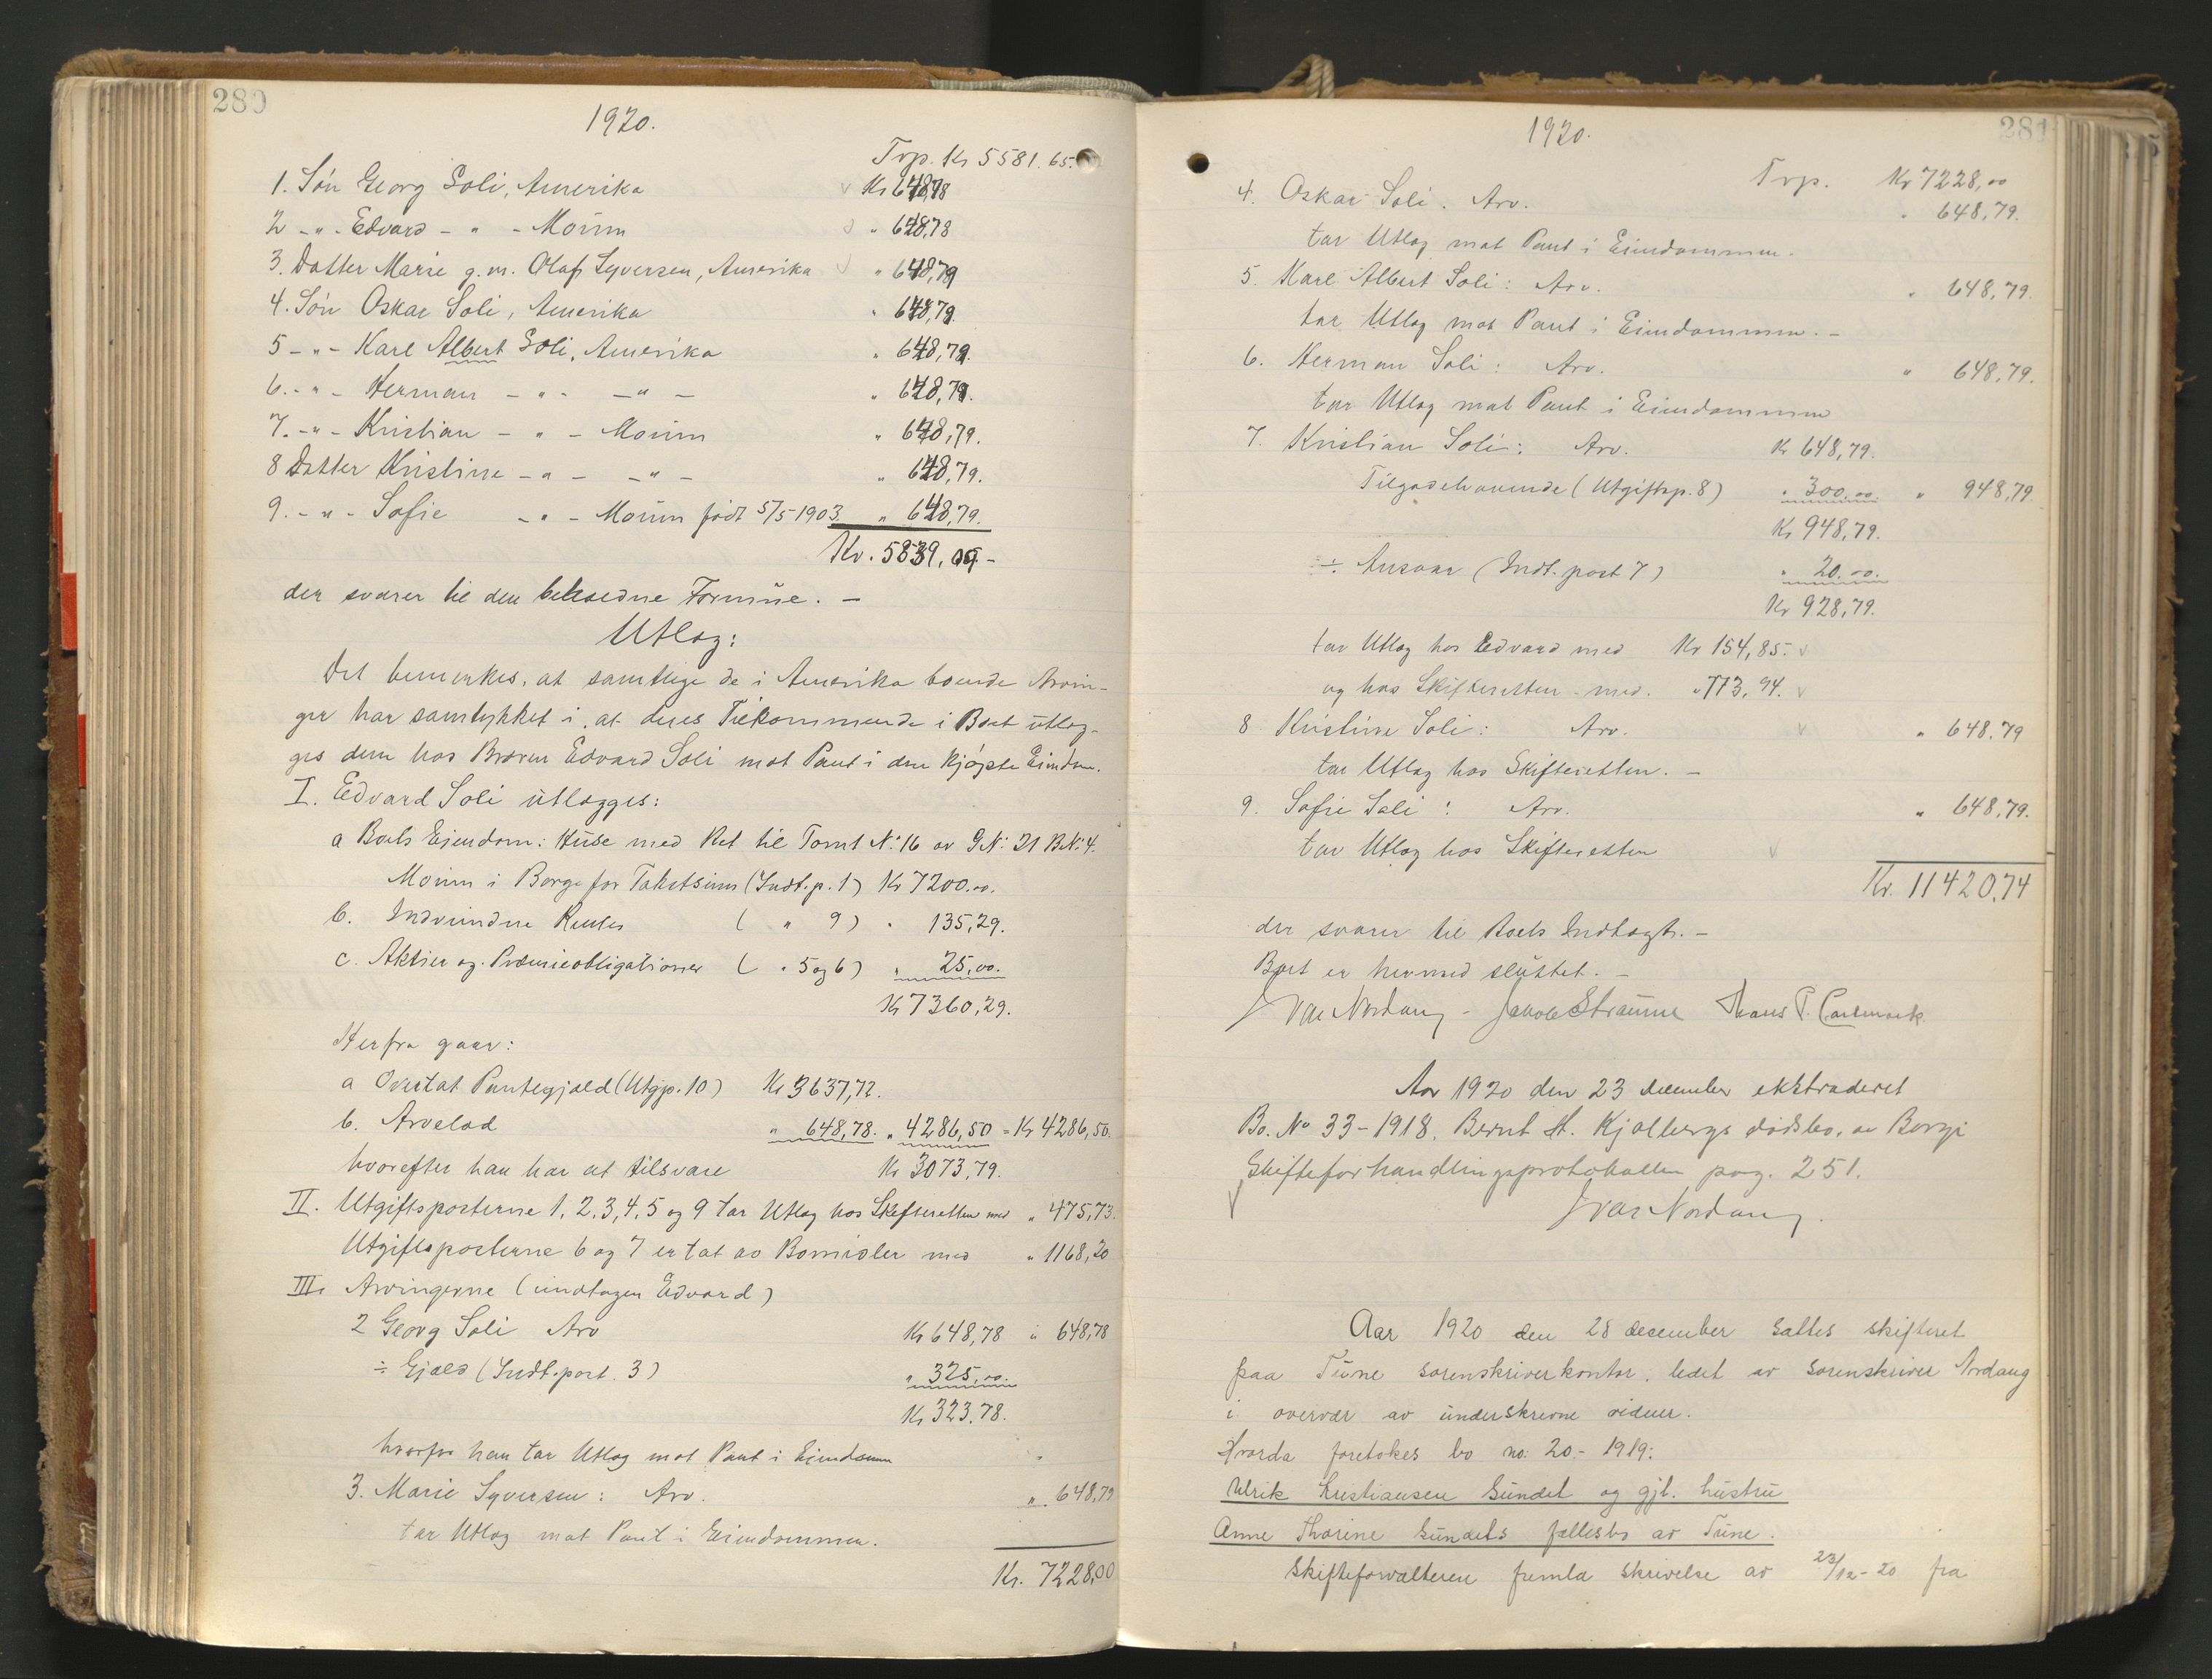 280
1920.
Trp. Kr 5581.65.
1. Søn Georg Soli, Amerika Kr 648,78
2 -"- Edvard -"- Moum " 648,78
3. Datter Marie g.m. Olaf Syversen, Amerika " 648,79
4. Søn Oskar Soli, Amerika " 648,79.
5 -"- Karl Albert Soli, Amerika " 648,79.
6. -"- Herman -"- -"- " 648,79.
7. -"- Kristian -"- Moum " 648,79.
8 Datter Kristine -"- -"- " 648,79.
9. -"- Sofie -"- Moum født 5/5 1903 " 648,79.
Kr. 5839,09.-
der svarer til den beholdne Formue. -
Utlæg:
Det bemerkes, at samtlige de i Amerika boende Arvin-
ger har samtykket i, at deres Tilkommende i Boet utlæg-
ges dem hos Broren Edvard Soli mot Pant i den kjøpte Eiendom.
I. Edvard Soli utlægges:
a Boets Eiendom: Huse med Ret til Tomt No. 16 av GNo. 21 BNo. 4.
Moum i Borge for Takstsum (Indt.p. 1) Kr 7200.00.
b. Indvundne Renter ( " 9) " 135,29.
c. Aktier og Præmieobligationer ( " 5 og 6) " 25,00.
Kr 7360,29.
Herfra gaar:
a Overtat Pantegjæld (Utgp. 10) Kr 3637,72.
b. Arvelod " 648,78. " 4286,50 = Kr 4286,50.
hvorefter han har at tilsvare Kr 3073,79.
II. Utgiftsposterne 1, 2, 3, 4, 5 og 9 tar Utlæg hos Skifteretten med " 475,73.
Utgiftsposterne 6 og 7 er tat av Bomidler med " 1168,20
III. Arvingerne (undtagen Edvard)
2 Georg Soli Arv Kr 648,78 " 648,78
÷ Gjæld (Indt.post 3) " 325,00.
Kr 323.78.
hvorfor han tar Utlæg mot Pant i Eiendommen
3. Marie Syversen: Arv. " 648,79
tar Utlæg mot Pant i Eiendommen.
Kr. 7228,00
281
1920.
Trp. Kr 7228,00
4. Oskar Soli. Arv. " 648,79.
tar Utlæg mot Pant i Eiendommen.
5. Karl Albert Soli: Arv. " 648,79.
tar Utlæg mot Pant i Eiendommen. -
6. Herman Soli: Arv. " 648,79.
tar Utlæg mot Pant i Eiendommen
7. Kristian Soli: Arv. Kr 648,79.
Tilgodehavende (Utgiftsp. 8) " 300,00. " 948,79
Kr 948,79.
÷ Ansvar (Indt. post 7) " 20.00.
Kr 928,79.
tar Utlæg hos Edvard med Kr 154,85.
og hos Skifteretten med. " 773,94.
8 Kristine Soli: Arv. " 648,79
tar Utlæg hos Skifteretten. -
9. Sofie Soli: Arv. " 648,79.
tar Utlæg hos Skifteretten
Kr. 11420,74
der svarer til Boets Indtægt. -
Boet er hermed sluttet. -
Ivar Nordang - Jakob Straume Hans P. Carlmark
Aar 1920 den 23 december ekstraderet
Bo. No 33-1918. Bernt H. Kjølbergs dødsbo, av Borge
Skifteforhandlingsprotokollen pag. 251.
Ivar Nordang.
Aar 1920 den 28 december sattes skifteret
paa Tune sorenskriverkontor, ledet av sorenskriver Nordang
i overvær av underskrevne vidner.
Hvorda foretokes bo no: 20-1919:
Ulrik Kristiansen Sundet og gjl. hustru
Anne Thorine Sundets fællesbo av Tune.
Skifteforvalteren fremla skrivelse av 23/12-20 fra